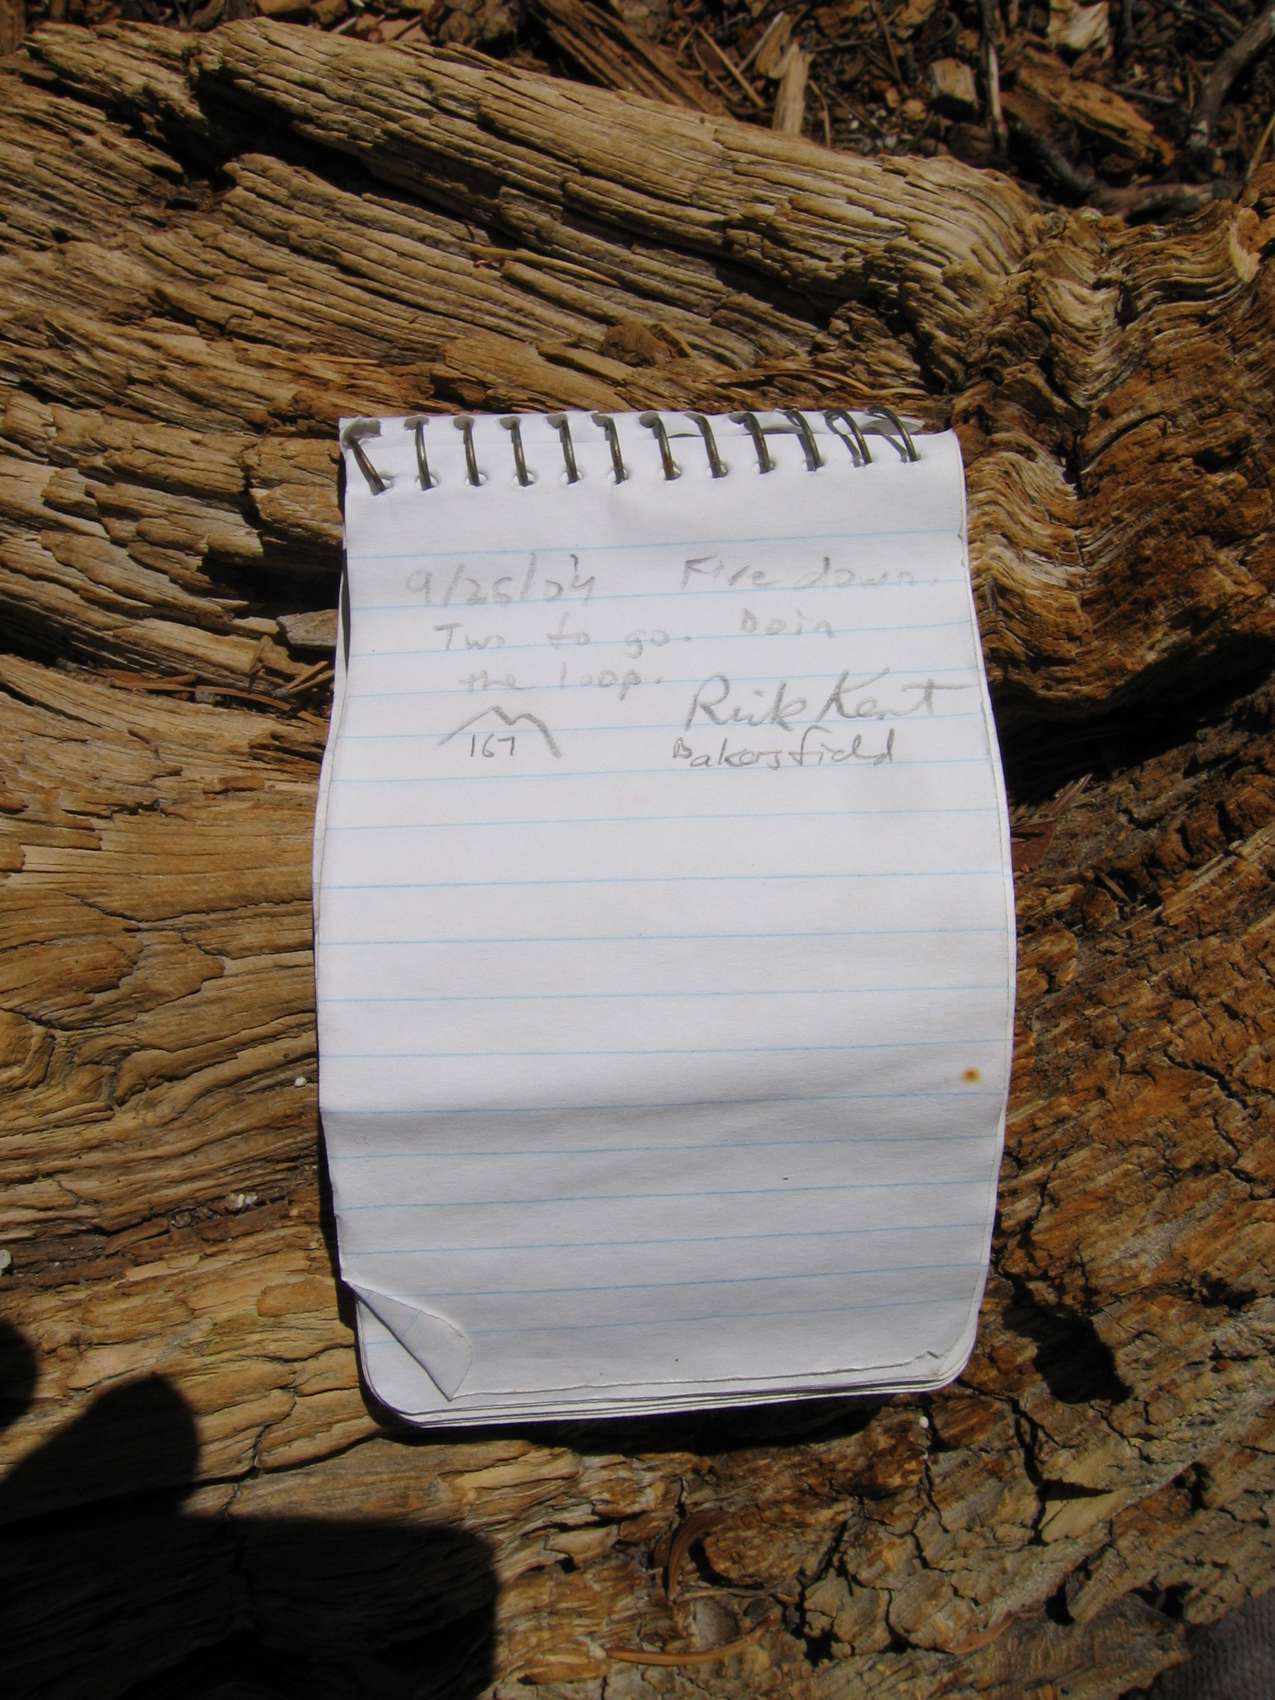 9/25/04 Five down.
Two to go. Doin
the loop.
Rick Kent
167 Bakersfield